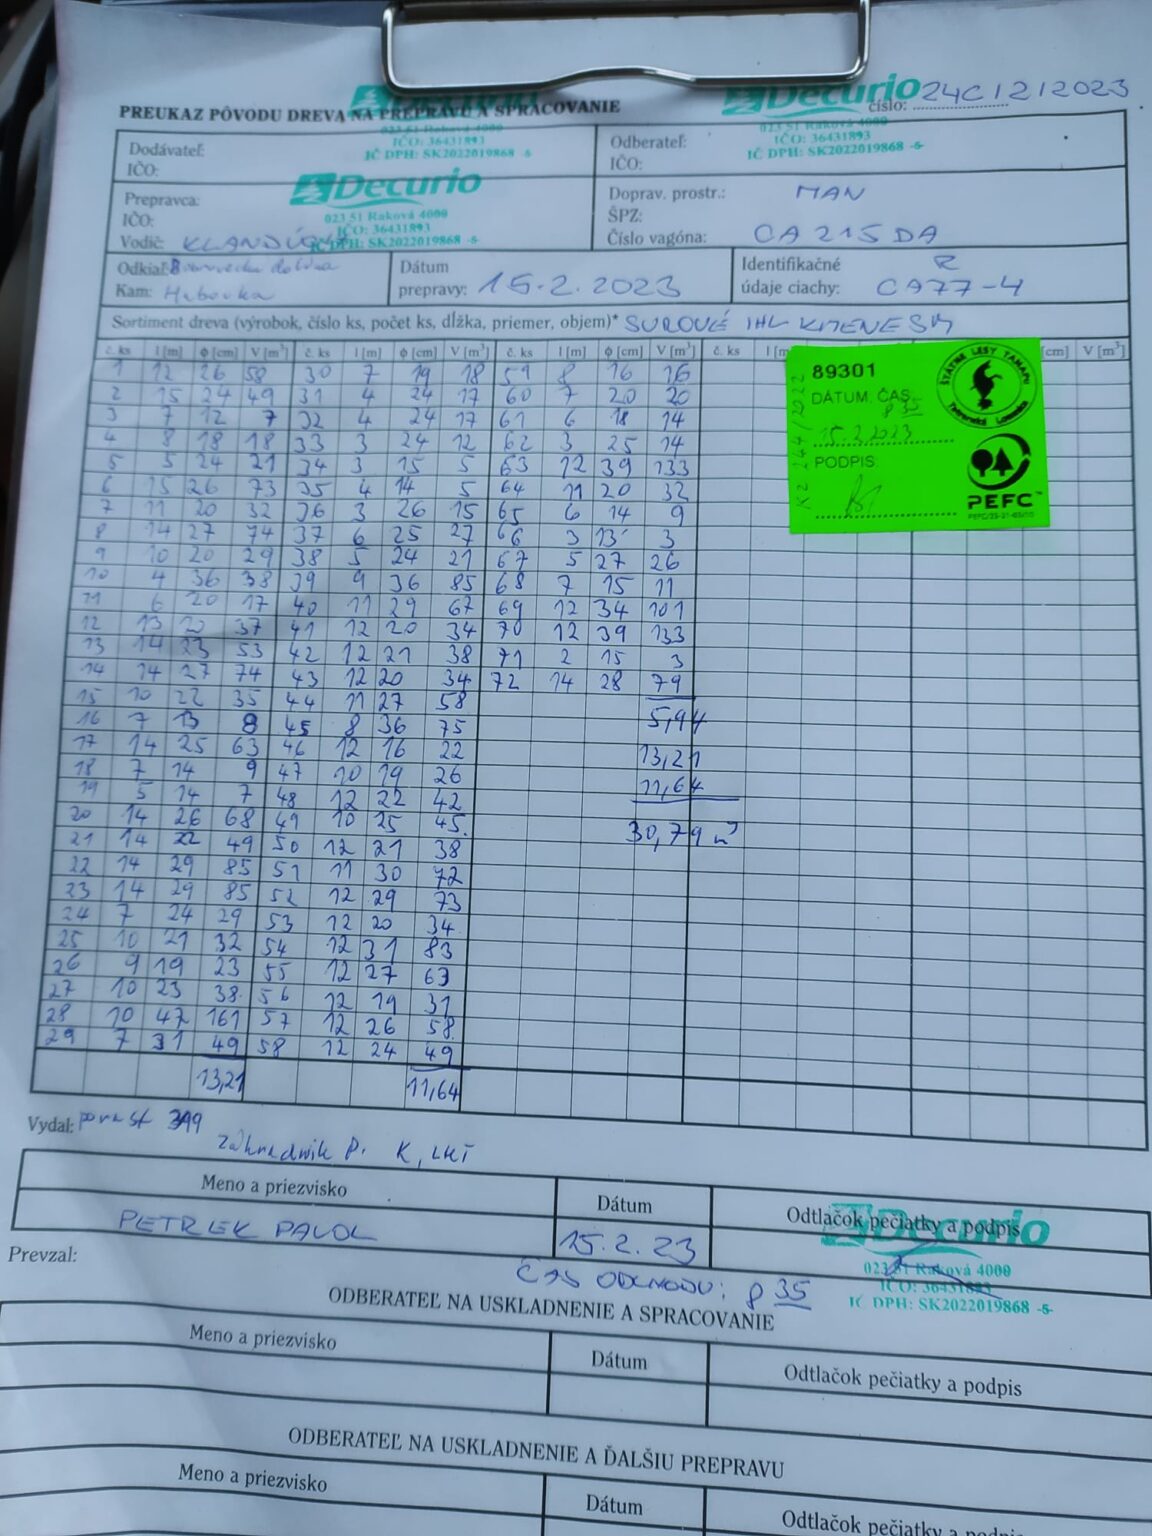 Decurio
Decurio
číslo: 24C/2/2023
PREUKAZ PÔVODU DREVA NA PREPRAVU A SPRACOVANIE
023 51 Raková 4000
IČO: 36431893
IČ DPH: SK2022019868 -5-
023 51 Raková 4000
IČO: 36431893
IČ DPH: SK2022019868 -5-
Dodávateľ:
IČO:
Odberateľ:
IČO:
Decurio
023 51 Raková 4000
IČO: 36431893
IČ DPH: SK2022019868 -5-
Prepravca:
IČO:
Vodič:
Doprav. prostr.: MAN
ŠPZ:
Číslo vagóna: CA 215 DA
Odkiaľ: dolina
Kam: Habovka
Dátum
prepravy: 15.2.2023
Identifikačné R
údaje ciachy: CA77-4
Sortiment dreva (výrobok, číslo ks, počet ks, dĺžka, priemer, objem)* SUROVÉ IHL KMENE SM
č. ks l [m] φ [cm] V [m³] č. ks l [m] φ [cm] V [m³] č. ks l [m] φ [cm] V [m³] č. ks l [m] [cm] V [m³]
1 12 26 58 30 7 19 18 59 8 16 16
2 15 24 49 31 4 24 17 60 7 20 20
3 7 12 7 32 4 24 17 61 6 18 14
4 8 18 18 33 3 24 12 62 3 25 14
5 5 24 21 34 3 15 5 63 12 39 133
6 15 26 73 35 4 14 5 64 11 20 32
7 11 20 32 36 3 26 15 65 6 14 9
8 14 27 74 37 6 25 27 66 3 13 3
9 10 20 29 38 5 24 21 67 5 27 26
10 4 36 38 39 9 36 85 68 7 15 11
11 6 20 17 40 11 29 67 69 12 34 101
12 13 20 37 41 12 20 34 70 12 39 133
13 14 23 53 42 12 21 38 71 2 15 3
14 14 27 74 43 12 20 34 72 14 28 79
15 10 22 35 44 11 27 58
16 7 13 8 45 8 36 75 5,94
17 14 25 63 46 12 16 22 13,21
18 7 14 9 47 10 19 26 11,64
19 5 14 7 48 12 22 42
20 14 26 68 49 10 25 45 30,79 m³
21 14 22 49 50 12 21 38
22 14 29 85 51 11 30 72
23 14 29 85 52 12 29 73
24 7 24 29 53 12 20 34
25 10 21 32 54 12 31 83
26 9 19 23 55 12 27 63
27 10 23 38 56 12 19 31
28 10 47 161 57 12 26 58
29 7 31 49 58 12 24 49
13,21 11,64
89301
DÁTUM, ČAS
8 35
15.2.2023
PODPIS
ŠTÁTNE LESY TANAPu
Tatranská Lomnica
PEFC™
Vydal: porast
Záhradník P.
Meno a priezvisko Dátum Odtlačok pečiatky a podpis
PETREK PAVOL 15.2.23
Decurio
023 51 Raková 4000
IČO: 36431893
IČ DPH: SK2022019868 -5-
Prevzal:
ČAS ODCHODU: 8 35
ODBERATEĽ NA USKLADNENIE A SPRACOVANIE
Meno a priezvisko Dátum Odtlačok pečiatky a podpis
ODBERATEĽ NA USKLADNENIE A ĎALŠIU PREPRAVU
Meno a priezvisko Dátum Odtlačok pečiatky a podpis